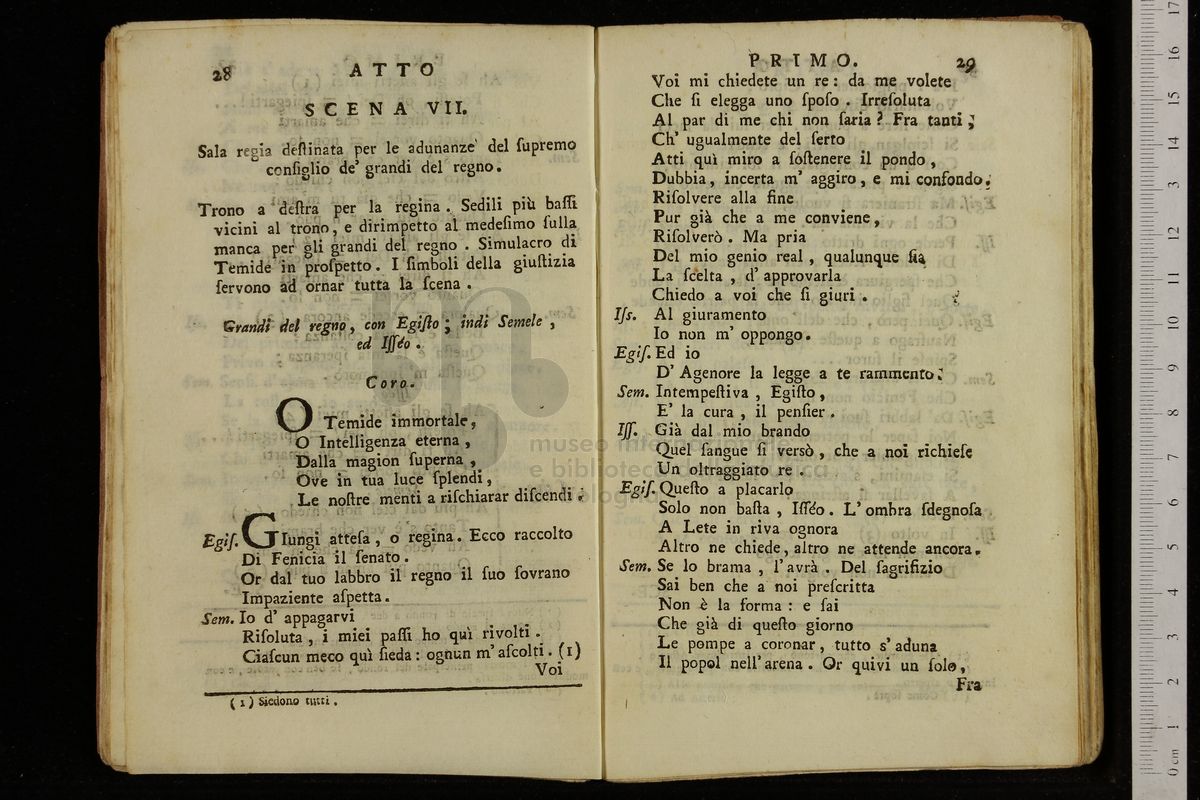 28 ATTO
SCENA VII.
Sala regia deſtinata per le adunanze del ſupremo
conſiglio de' grandi del regno.
Trono a deſtra per la regina. Sedili più baſſi
vicini al trono, e dirimpetto al medeſimo ſulla
manca per gli grandi del regno. Simulacro di
Temide in proſpetto. I ſimboli della giuſtizia
ſervono ad ornar tutta la ſcena.
Grandi del regno, con Egiſto; indi Semele,
ed Iſſéo.
Coro.
O Temide immortale,
O Intelligenza eterna,
Dalla magion ſuperna,
Ove in tua luce ſplendi,
Le noſtre menti a riſchiarar diſcendi.
Egiſ. Giungi atteſa, o regina. Ecco raccolto
Di Fenicia il ſenato.
Or dal tuo labbro il regno il ſuo ſovrano
Impaziente aſpetta.
Sem. Io d' appagarvi
Riſoluta, i miei paſſi ho quì rivolti.
Ciaſcun meco quì ſieda: ognun m' aſcolti. (1)
Voi
(1) Siedono tutti.
PRIMO. 29
Voi mi chiedete un re: da me volete
Che ſi elegga uno ſpoſo. Irreſoluta
Al par di me chi non ſaria? Fra tanti;
Ch' ugualmente del ſerto
Atti quì miro a ſoſtenere il pondo,
Dubbia, incerta m' aggiro, e mi confondo.
Riſolvere alla fine
Pur già che a me conviene,
Riſolverò. Ma pria
Del mio genio real, qualunque ſia
La ſcelta, d' approvarla
Chiedo a voi che ſi giuri.
Iſs. Al giuramento
Io non m' oppongo.
Egiſ. Ed io
D' Agenore la legge a te rammento.
Sem. Intempeſtiva, Egiſto,
E' la cura, il penſier.
Iſſ. Già dal mio brando
Quel ſangue ſi versò, che a noi richieſe
Un oltraggiato re.
Egiſ. Queſto a placarlo
Solo non baſta, Iſſéo. L' ombra ſdegnoſa
A Lete in riva ognora
Altro ne chiede, altro ne attende ancora.
Sem. Se lo brama, l' avrà. Del ſagrifizio
Sai ben che a noi preſcritta
Non è la forma: e ſai
Che già di queſto giorno
Le pompe a coronar, tutto s' aduna
Il popol nell' arena. Or quivi un ſolo,
Fra